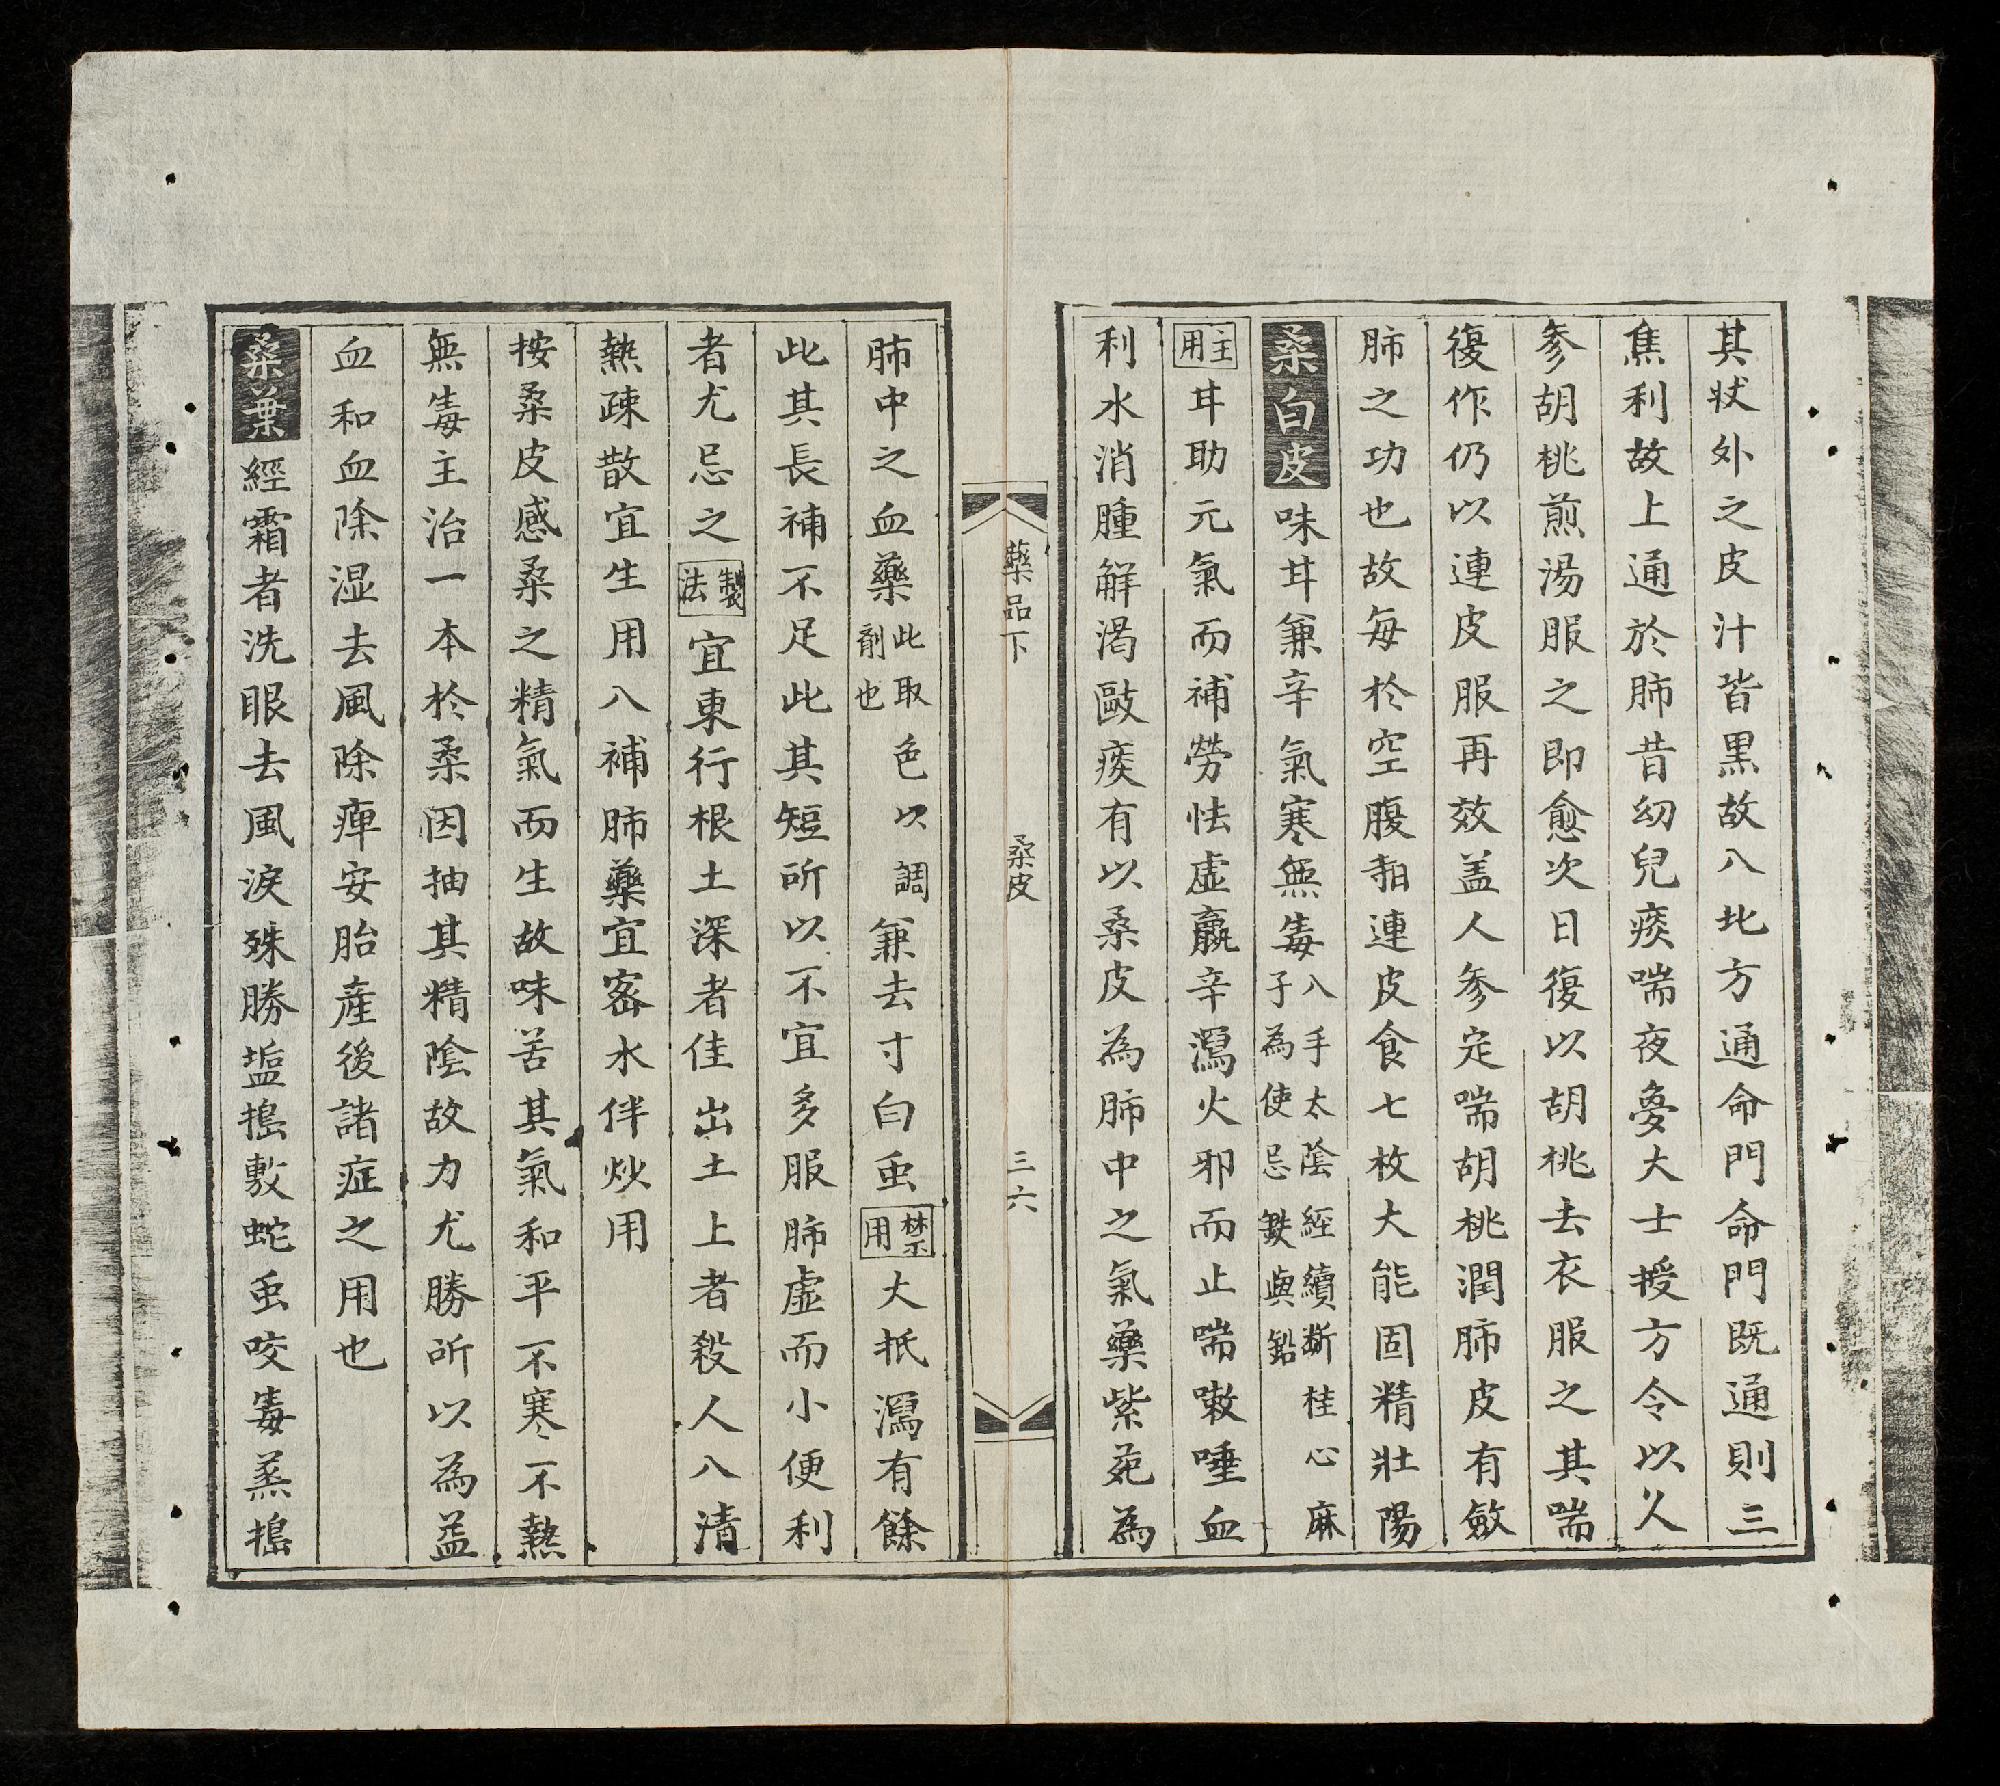 其状外之皮汁皆黒故入北方通命門命門既通則三
焦利故上通於肺昔幼兒痰喘夜夢大士授方令以人
參胡桃煎湯服之即愈次日復以胡桃去衣服之其喘
復作仍以連皮服再效盖人參定喘胡桃潤肺皮有斂
肺之功也故每於空腹連皮食七枚大能固精壯陽
桑白皮味甘兼辛氣寒無毒入手太陰經續斷桂心麻
子為使忌鉄與鉛
主用甘助元氣而補勞怯虛羸辛瀉火邪而止喘嗽唾血
利水消腫解渴敺痰有以桑皮為肺中之氣藥紫菀為
藥品下 桑皮 三六
肺中之血藥此取色以調
劑也兼去寸白虫禁用大抵瀉有餘
此其長補不足此其短所以不宜多服肺虛而小便利
者尤忌之製法宜東行根土深者佳出土上者殺人入清
熱疎散宜生用入補肺藥宜密水伴炒用
按桑皮感桑之精氣而生故味苦其氣和平不寒不熱
無毒主治一本於桑因抽其精陰故力尤勝所以為益
血和血除湿去風除痺安胎產後諸症之用也
桑葉經霜者洗眼去風淚殊勝塩搗敷蛇虫咬毒蒸搗